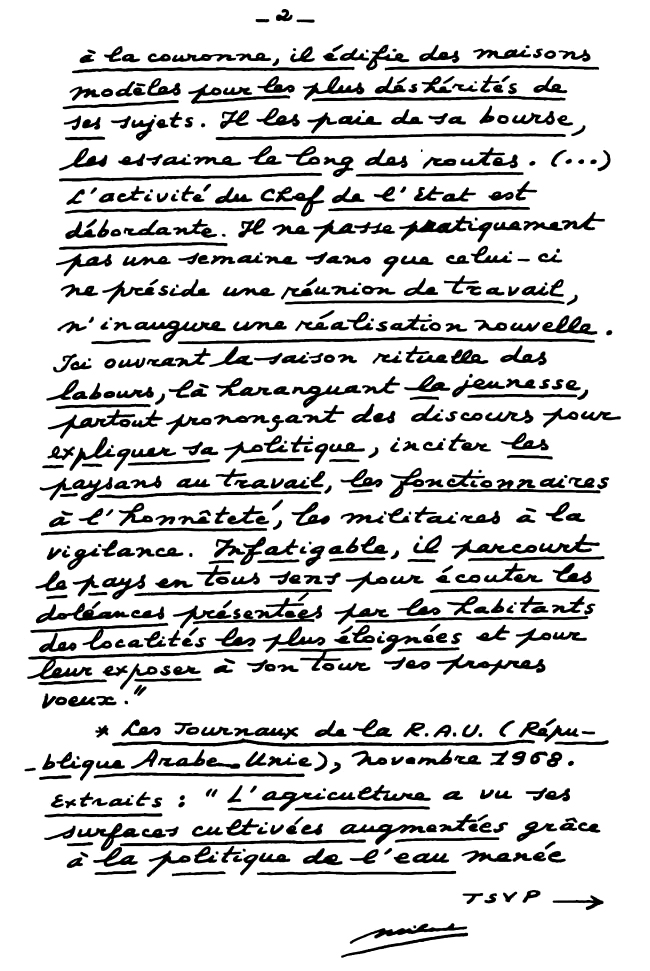 _ 2 _
à la couronne, il édifie des maisons
modèles pour les plus déshérités de
ses sujets. Il les paie de sa bourse,
les essaime le long des routes. (...)
L'activité du Chef de l'Etat est
débordante. Il ne passe pratiquement
pas une semaine sans que celui-ci
ne préside une réunion de travail,
n'inaugure une réalisation nouvelle.
Ici ouvrant la saison rituelle des
labours, là haranguant la jeunesse,
partout prononçant des discours pour
expliquer sa politique, inciter les
paysans au travail, les fonctionnaires
à l'honnêteté, les militaires à la
vigilance. Infatigable, il parcourt
le pays en tous sens pour écouter les
doléances présentées par les habitants
des localités les plus éloignées et pour
leur exposer à son tour ses propres
voeux."
* Les Journaux de la R.A.U. (Répu-
-blique Arabe-Unie), novembre 1968.
Extraits : " L'agriculture a vu ses
surfaces cultivées augmentées grâce
à la politique de l'eau menée
TSVP →